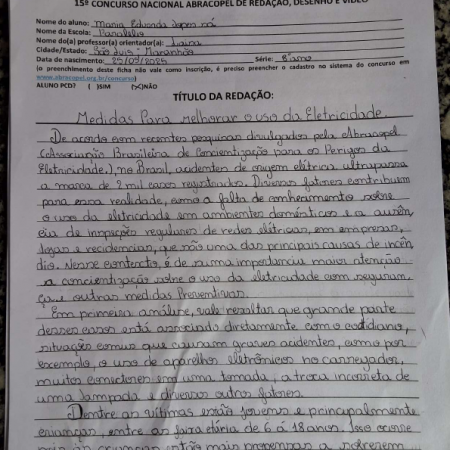 15º CONCURSO NACIONAL ABRACOPEL DE REDAÇÃO, DESENHO E VÍDEO
Nome do aluno: Maria Eduarda Lopes Sá
Nome da Escola:
Nome do(a) professor(a) orientador(a):
Cidade/Estado: São Luís - Maranhão
Data de nascimento: Série: 8º ano
(o preenchimento desta ficha não vale como inscrição, é preciso preencher o cadastro no sistema do concurso em
www.abracopel.org.br/concurso)
ALUNO PCD? ( )SIM (X)NÃO
TÍTULO DA REDAÇÃO:
Medidas Para melhorar o uso da Eletricidade.
De acordo com recentes pesquisas divulgadas pela Abracopel
(Associação Brasileira de Concientização para os Perigos da
Eletricidade), no Brasil, acidentes de origem elétrica ultrapassa
a marca de 2 mil casos registrados. Diversos fatores contribuem
para essa realidade, como a falta de conhecimento sobre
o uso da eletricidade em ambientes domésticos e a ausên
cia de inspeções regulares de redes elétricas, em empresas,
lojas e recidencias, que são uma das principais causas de incên
dio. Nesse contexto, é de suma importancia maior atenção
a concientização sobre o uso da eletricidade com seguran
ça e outras medidas Preventivas.
Em primeira análise, vale ressaltar que grande parte
desses casos está associado diretamente com o cotidiano,
situações comuns que causam graves acidentes, como por
exemplo, o uso de aparelhos eletrônicos no carregador,
muitos conectores em uma tomada, a troca incorreta de
uma lampada e diversos outros fatores.
Dentre as vítimas estão jovens e principalmente
crianças, entre as faixa etária de 6 à 18 anos. Isso ocorre
as crianças estão mais propensas a